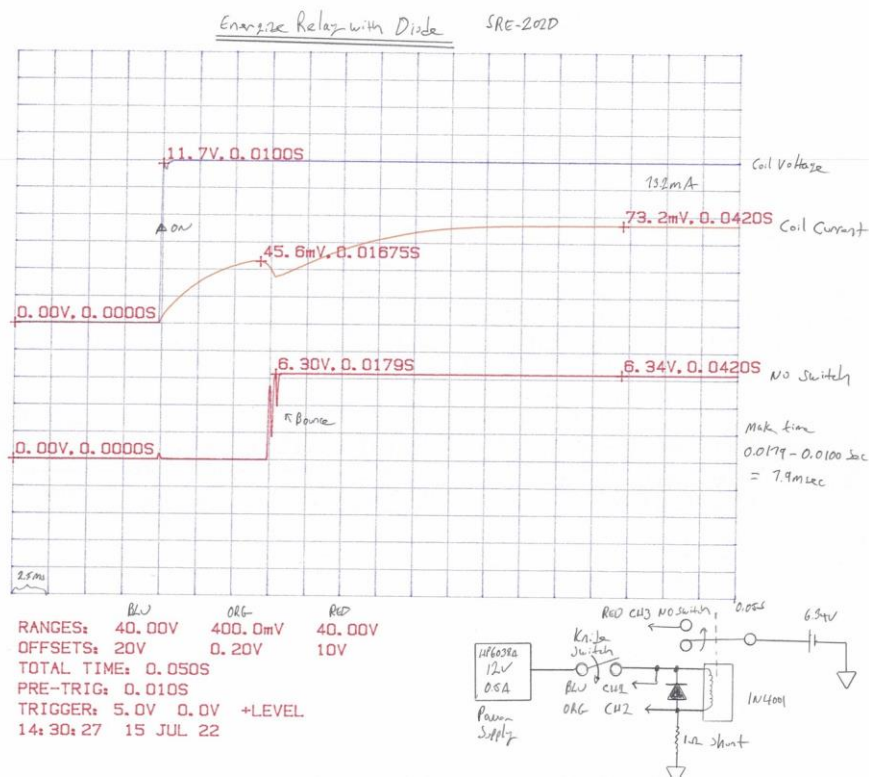 Energize Relay with Diode SRE-202D
11.7V, 0.0100S
Coil Voltage
73.2mA
ON
73.2mV, 0.0420S
Coil Current
45.6mV, 0.01675S
0.00V, 0.0000S
6.30V, 0.0179S
6.34V, 0.0420S
NO Switch
Bounce
0.00V, 0.0000S
Make time
0.0179 - 0.0100 Sec
= 7.9msec
2.5ms
0.05S
BLU ORG RED
RANGES: 40.00V 400.0mV 40.00V
OFFSETS: 20V 0.20V 10V
TOTAL TIME: 0.050S
PRE-TRIG: 0.010S
TRIGGER: 5.0V 0.0V +LEVEL
14:30:27 15 JUL 22
RED CH3 NO Switch
6.34V
Knife
Switch
HP6038A
12V
0.5A
Power
Supply
BLU CH1
ORG CH2
1N4001
1Ω Shunt